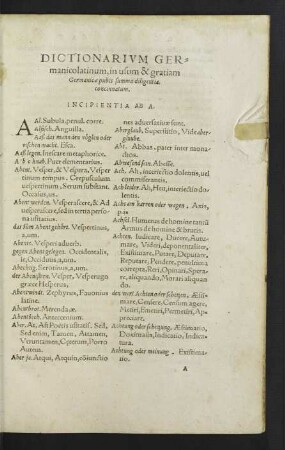 DICTIONARIVM GER-
manicolatinum, in usum & gratiam
Germanicæ pubis summa diligentia
concinnatum.
INCIPIENTIA AB A.
Al. Subula, penul. corre.
Aalfisch. Anguilla.
Aas das man den vöglen oder
fischen macht. Esca.
Aaß legen. Inescare metaphorice.
A b c knab. Puer elementarius.
Abent. Vesper, & Vespera, Vesper
tinum tempus. Crepusculum
vespertinum, Serum substant.
Occasus, us.
Abent werden. Vesperascere, & Ad
uesperascere, sed in tertia perso-
na usitatius.
das dem Abent gehört. Vespertinus,
a, um.
Abents. Vesperi aduerb.
gegen Abent gelegen. Occidentalis,
le, Occiduus, a, um.
Abechtig. Serotinus, a, um.
der Abentstern. Vesper, Vesperugo
græce Hesperus.
Abentwind. Zephyrus, Fauonius
latine.
Abentbrot. Merenda æ.
Abentläuch. Antecœnium.
Aber. At, Ast Poetis usitatũ. Sed,
Sedenim, Tamen, Attamen,
Veruntamen, Cæterum, Porro
Autem.
Aber ja. Atqui, Atquin, cõiunctio
nes aduersatiuæ sunt.
Aberglaub, Superstitio, Vide aber-
glaube.
Abt. Abbas, pater inter mona-
chos.
Abwesend sein. Abesse.
Ach, Ah, interiectio dolentis, uel
commiserantis.
Ach leider. Ah, Heu, interiectio do-
lentis.
Achs am karren oder wagen. Axis,
Humerus de homine tantũ
Armus de homine & brutis.
Achten. Iudicare, Ducere, Autu-
mare, Videri, deponentaliter,
Existimare, Putare, Deputare,
Reputare, Pendere, penultima
correpta, Reri, Opinari, Spera-
re, aliquando, Morari aliquan
do.
den wert Achten oder schetzen. Æsti-
mare, Censere, Censum agere,
Metiri, Emetiri, Permetiri, Ap-
preciare.
Achtung oder schetzung. Æstimatio,
Dimensio, Indicatio, Indica-
tura.
Achtung oder meinung. Existima-
tio.
A